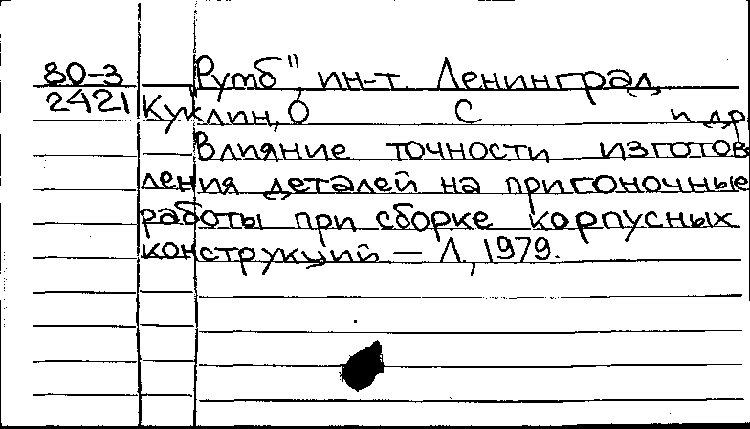 80-3 Румб", ин-т. Ленинград
2421 Куклин, О С и др
Влияние точности изготов
ления деталей на пригоночные
работы при сборке корпусных
конструкций — Л., 1979.